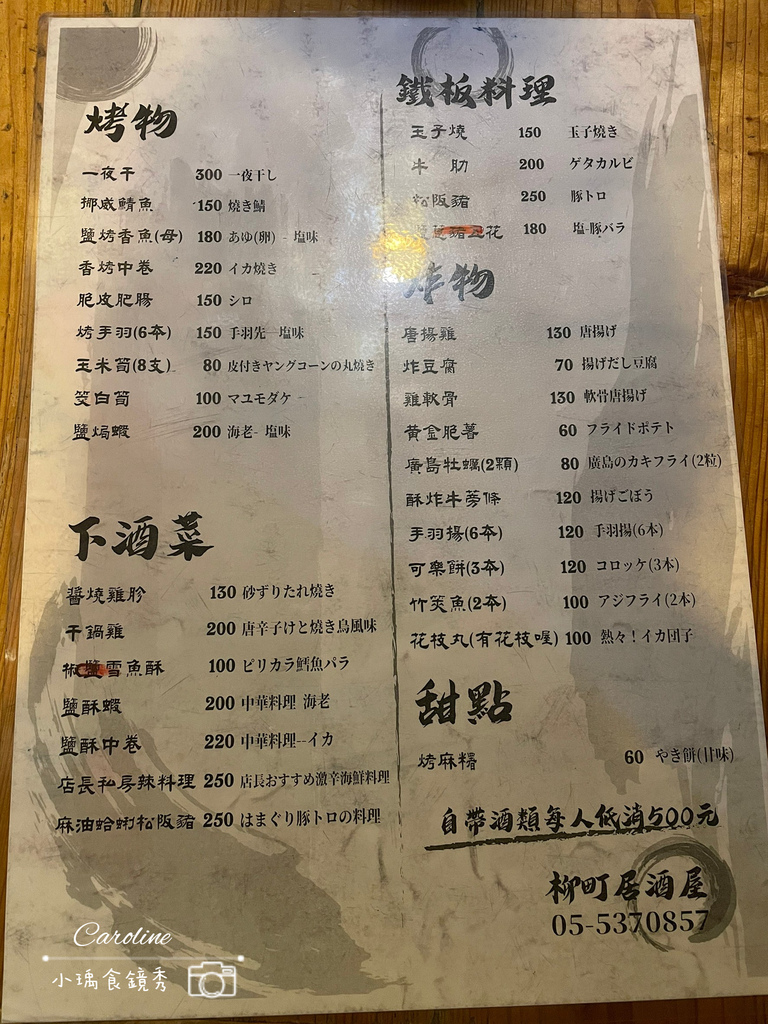 烤物
一夜干 300 一夜干し
挪威鯖魚 150 燒き鯖
鹽烤香魚(母) 180 あゆ(卵) - 塩味
香烤中卷 220 イカ燒き
脆皮肥腸 150 シロ
烤手羽(6本) 150 手羽先 塩味
玉米筍(8支) 80 皮付きヤングコーンの丸燒き
筊白筍 100 マユモダケ
鹽焗蝦 200 海老- 塩味
下酒菜
醬燒雞胗 130 砂ずりたれ燒き
干鍋雞 200 唐辛子けと燒き鳥風味
椒鹽雪魚酥 100 ピリカラ鱈魚バラ
鹽酥蝦 200 中華料理 海老
鹽酥中卷 220 中華料理--イカ
店長私房辣料理 250 店長おすすめ激辛海鮮料理
麻油蛤蜊松阪豬 250 はまぐり豚トロの料理
鐵板料理
玉子燒 150 玉子燒き
牛肋 200 ゲタカルビ
松阪豬 250 豚トロ
豬五花 180 塩-豚バラ
炸物
唐揚雞 130 唐揚げ
炸豆腐 70 揚げだし豆腐
雞軟骨 130 軟骨唐揚げ
黃金脆薯 60 フライドポテト
廣島牡蠣(2顆) 80 廣島のカキフライ(2粒)
酥炸牛蒡條 120 揚げごぼう
手羽揚(6本) 120 手羽揚(6本)
可樂餅(3本) 120 コロッケ(3本)
竹筴魚(2本) 100 アジフライ(2本)
花枝丸(有花枝喔) 100 熱々！イカ団子
甜點
烤麻糬 60 やき餅(甘味)
自帶酒類每人低消500元
柳町居酒屋
05-5370857
Caroline
小瑀食鏡秀